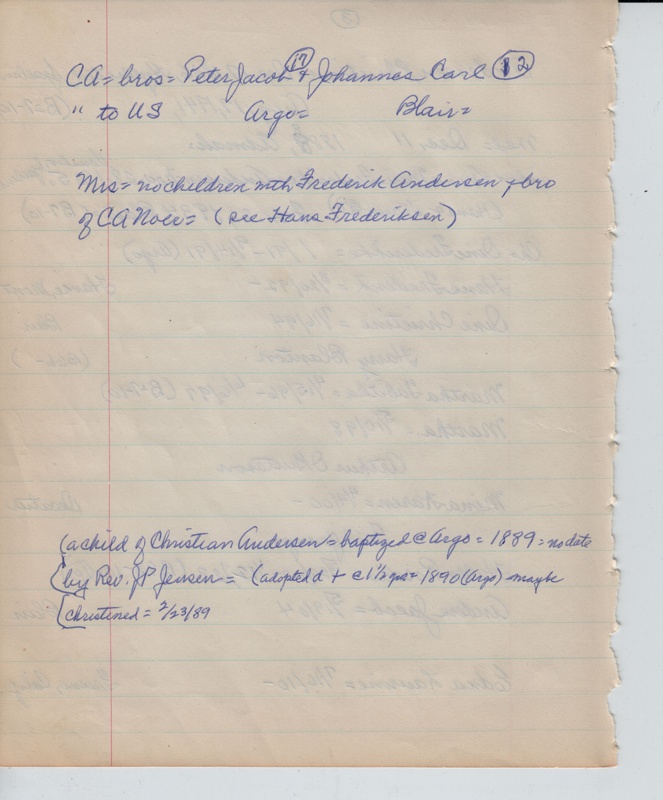 CA = bros = Peter Jacob (17) & Johannes Carl (12)
" to US Argo = Blair =
Mrs = no children mth Frederik Andersen & bro
of CA Noer = (see Hans Frederiksen)
(a child of Christian Andersen = baptized @ Argo = 1889 = no date
by Rev. JP Jensen = (adopted d + @ 1½ yrs = 1890 (Argo) maybe
Christened = 2/23/89